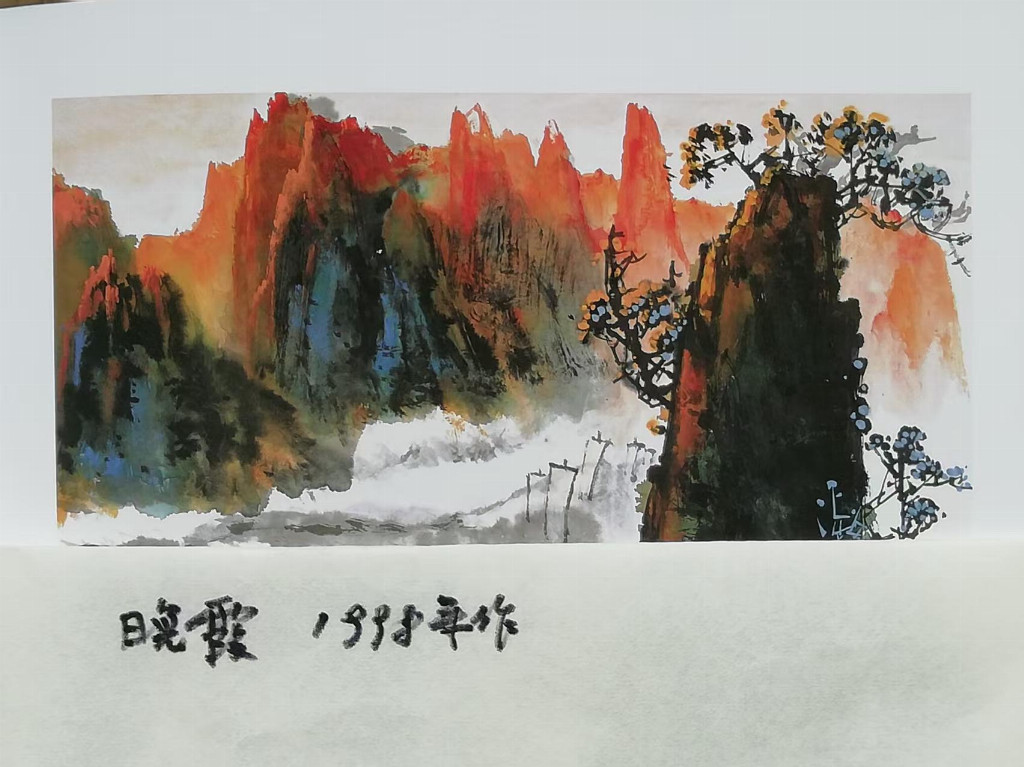 晚霞 1998年作